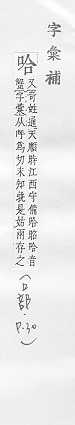 字彙補
哈
又哥姓通天順時江西守備哈昭哈音
蟹字彙从所爲切未知孰是姑兩存之
(口部·P.30)